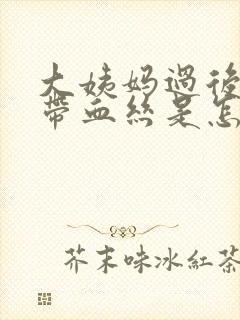 大姨妈過後
帶血丝是怎
芥末味冰紅茶